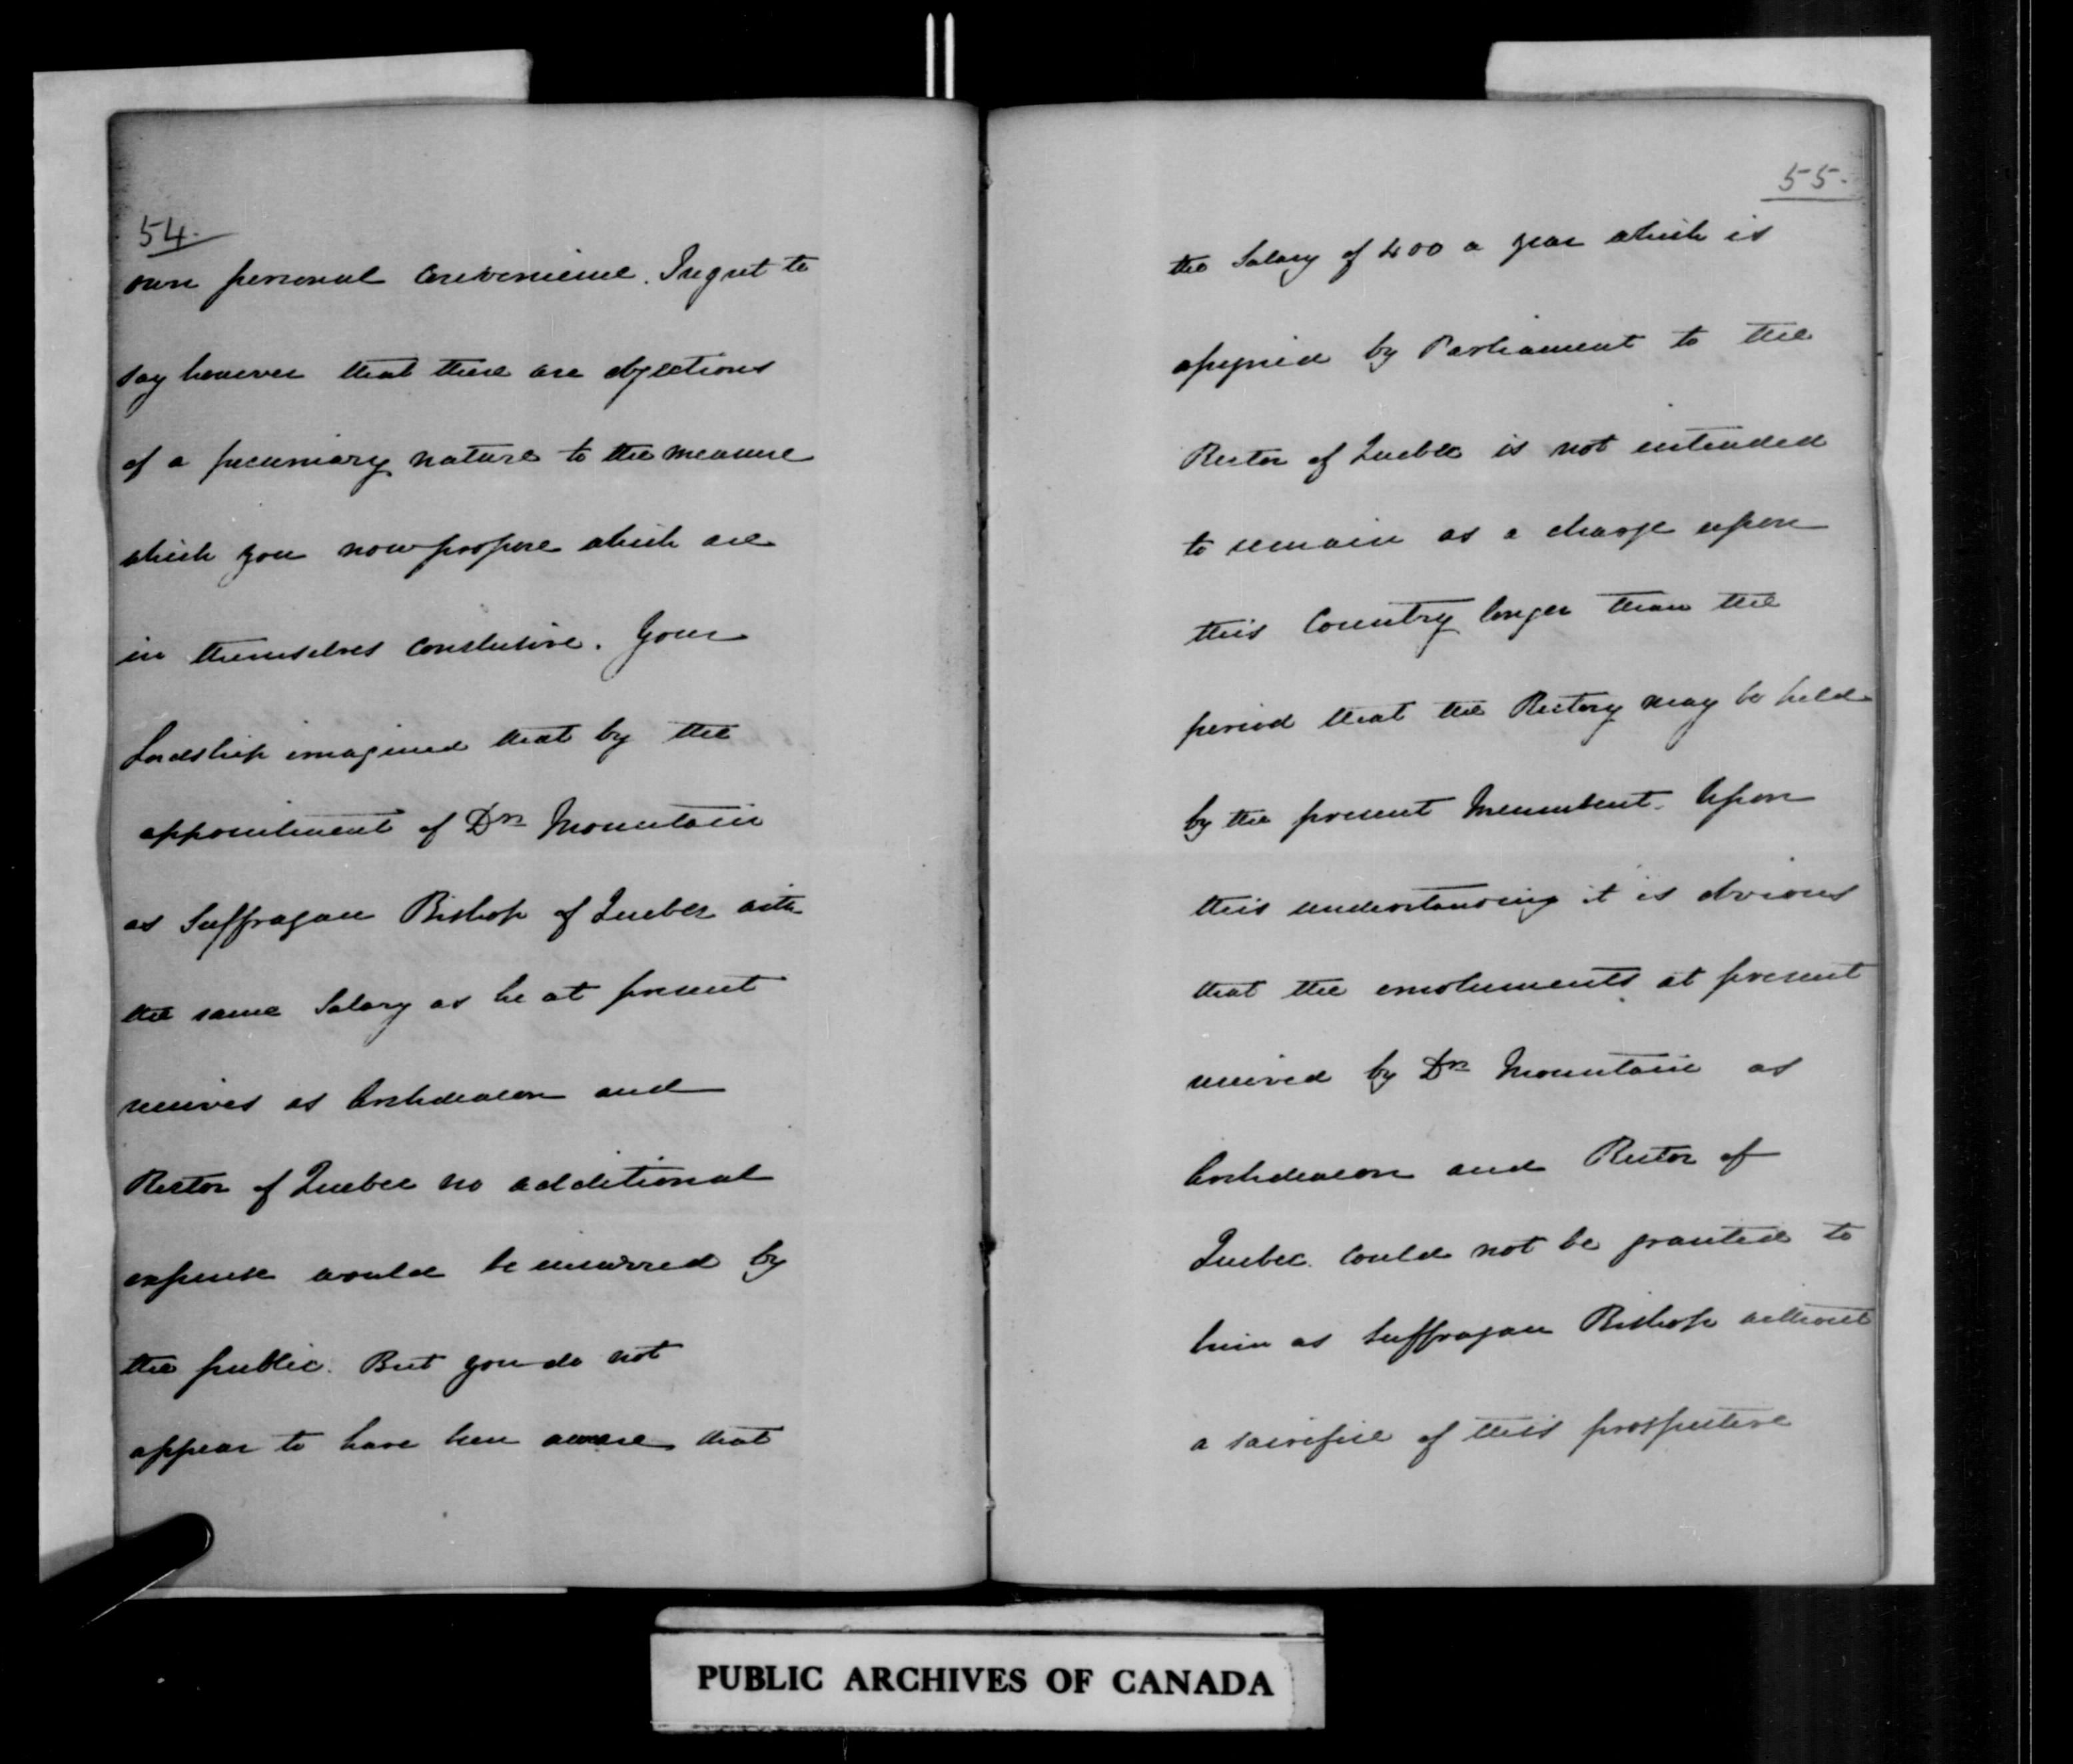 54.
own personal convenience. I regret to
say however that there are objections
of a pecuniary nature to the measure
which you now propose which are
in themselves conclusive. Your
Lordship imagined that by the
appointment of Dr. Mountain
as Suffragan Bishop of Quebec with
the same Salary as he at present
receives as Archdeacon and
Rector of Quebec no additional
expense would be incurred by
the public. But you do not
appear to have been aware that
55.
the Salary of 400 a year which is
assigned by Parliament to the
Rector of Quebec is not intended
to remain as a charge upon
this Country longer than the
period that the Rectory may be held
by the present Incumbent. Upon
this understanding it is obvious
that the emoluments at present
received by Dr. Mountain as
Archdeacon and Rector of
Quebec could not be granted to
him as Suffragan Bishop without
a sacrifice of this prospective
PUBLIC ARCHIVES OF CANADA